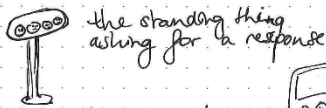 the standing thing
asking for a response